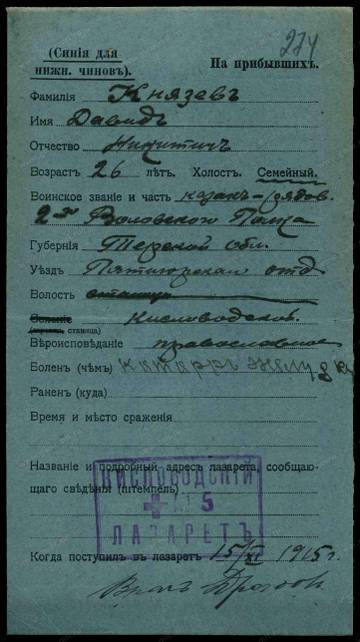 274
(Синія для
нижн. чиновъ).
На прибывшихъ.
Фамилія Князевъ
Имя Давидъ
Отчество Никитичъ
Возрастъ 26 лѣтъ. Холост. Семейный.
Воинское званіе и часть казак-рядов.
2го Полка
Губернія Терской Обл.
Уѣздъ Пятигорскаго отд
Волость станица
Селеніе Кисловодской
станица)
Вѣроисповѣданіе православное
Боленъ (чѣмъ) катарръ желуд
Раненъ (куда)
Время и мѣсто сраженія
Названіе и подробный адресъ лазарета, сообщаю-
щаго свѣдѣнія (штемпель)
КИСЛОВОДСКІЙ
5
ЛАЗАРЕТЪ
Когда поступилъ въ лазаретъ 15/XI 1915 г.
Врачъ